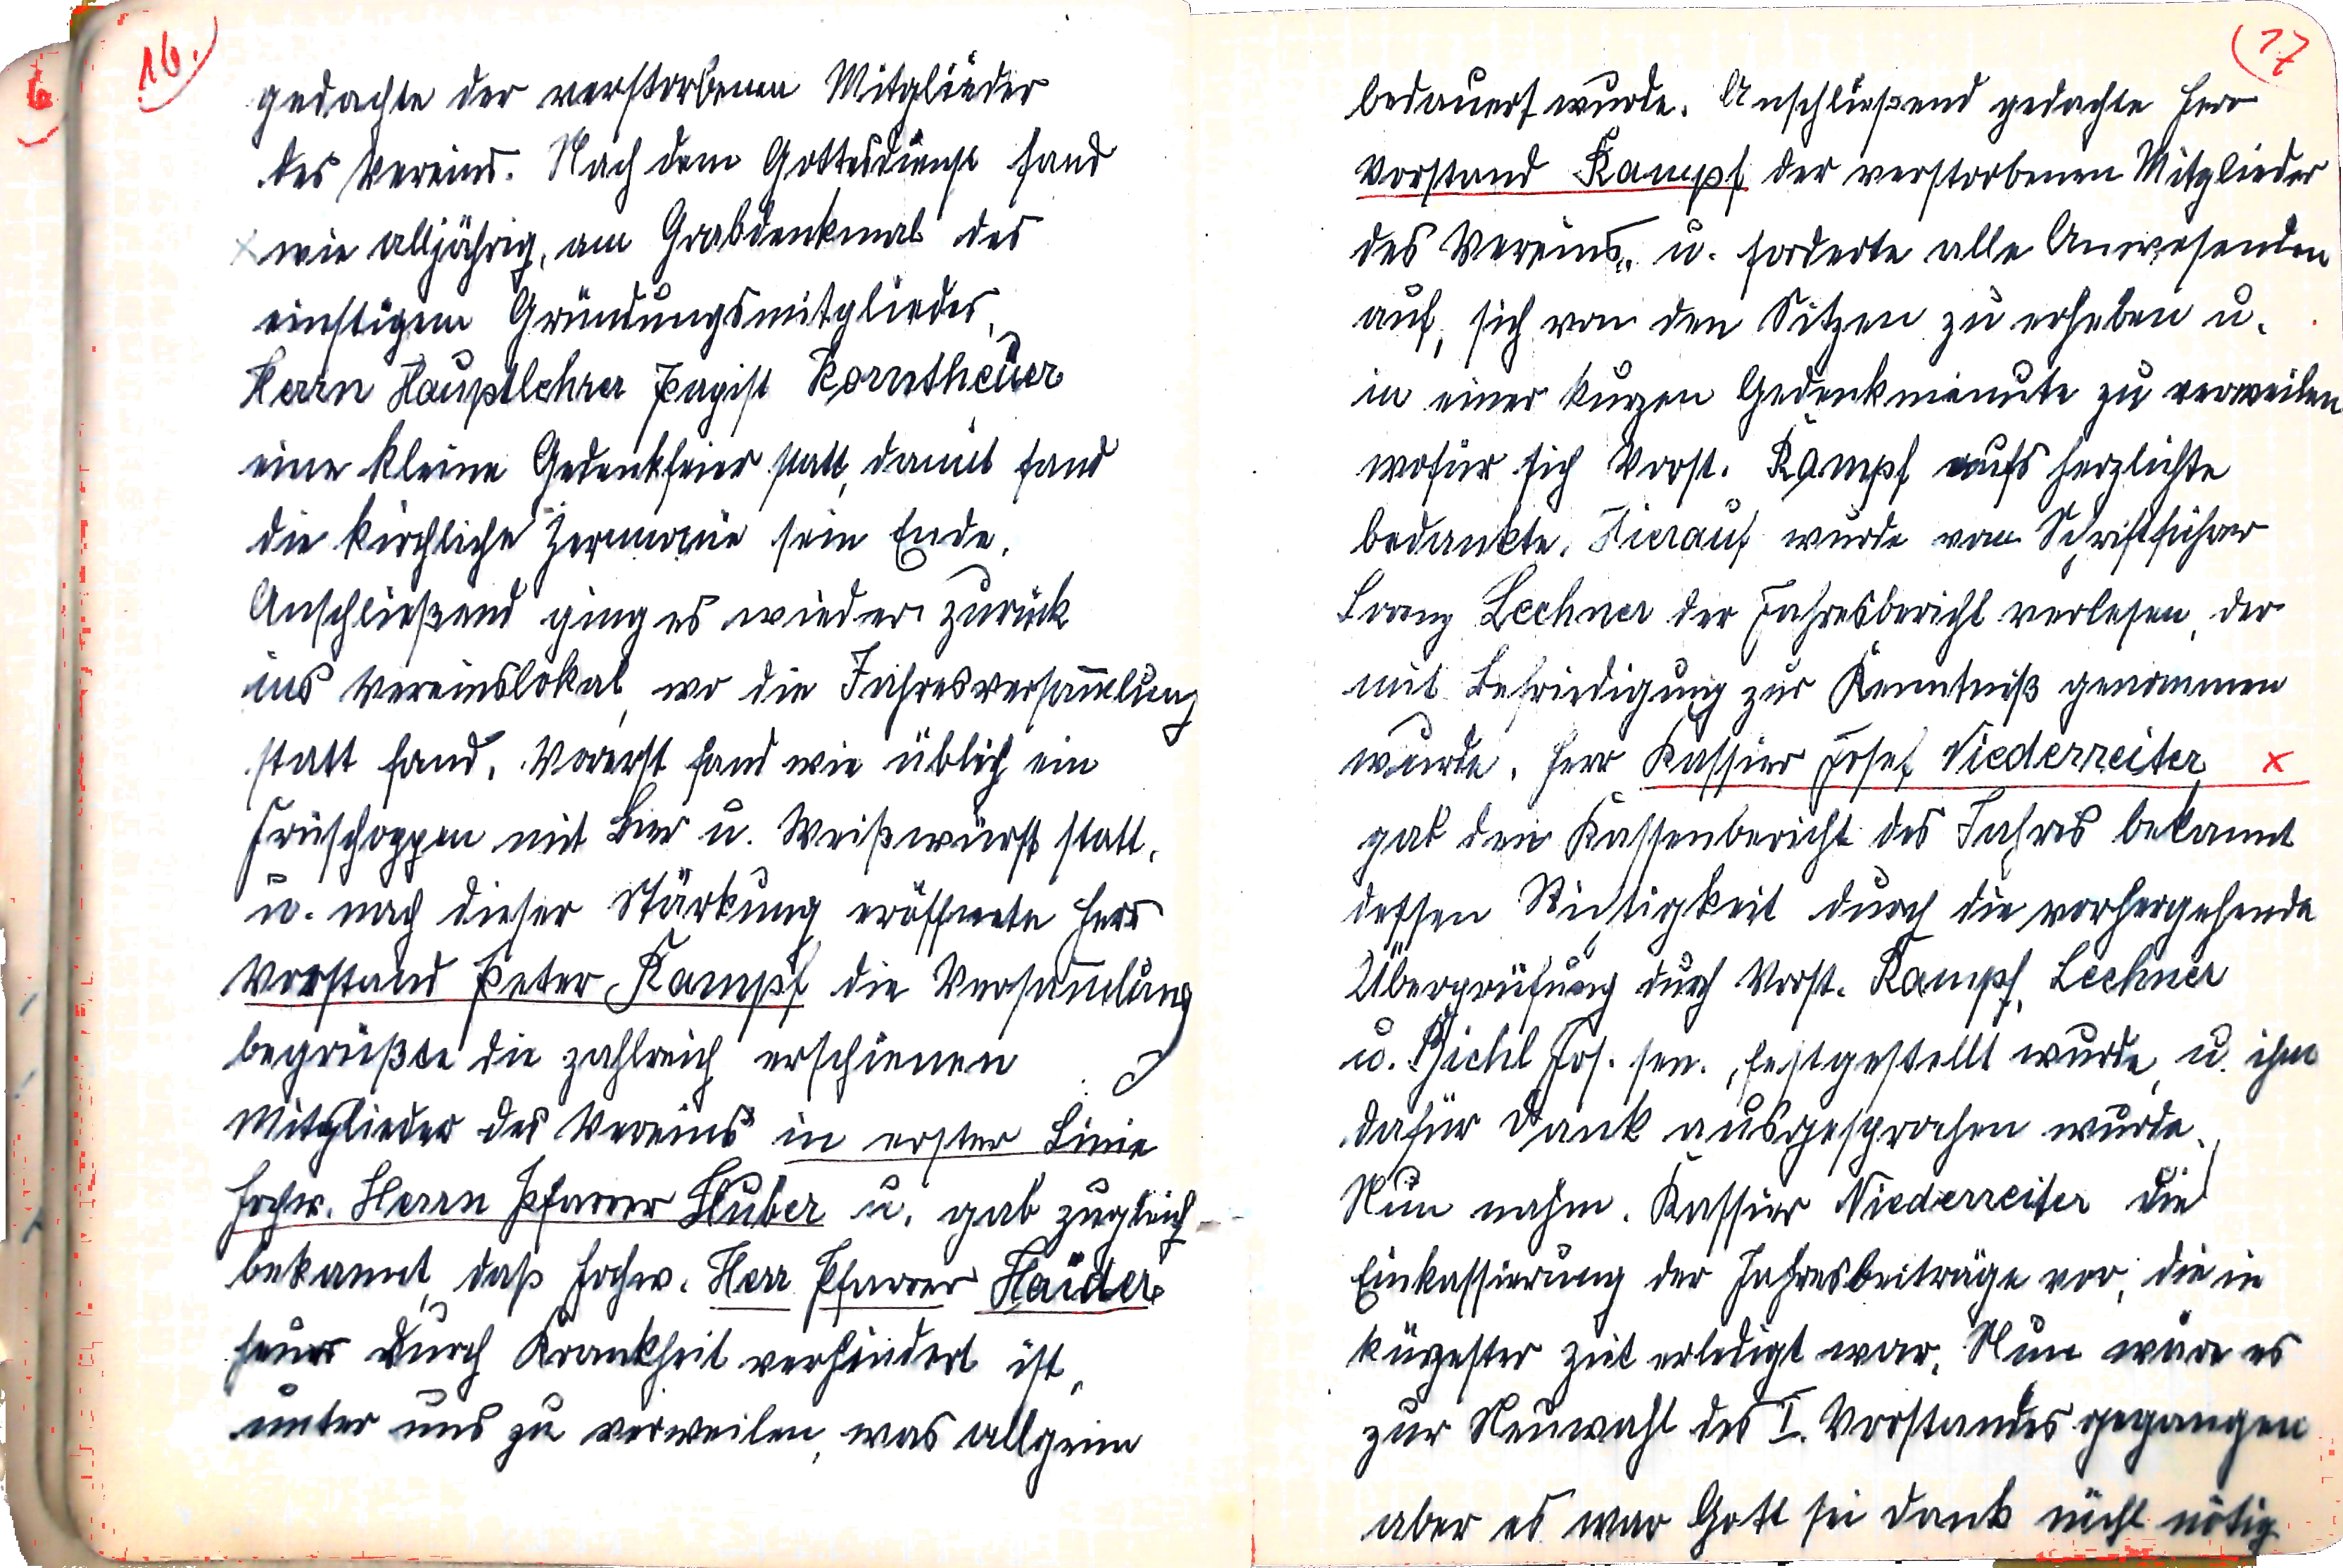 16.
gedachte der verstorbenen Mitglieder
des Vereins. Nach dem Gottesdienst fand
wie alljährig, am Grabdenkmal des
einstigen Gründungsmitgliedes,
Herrn Hauptlehrer Korntheuer
eine kleine Gedenkfeier statt, damit fand
die kirchliche Zermonie sein Ende.
Anschließend ging es wieder zurück
ins Vereinslokal, wo die Jahresversam̅lung
statt fand. Vorerst fand wie üblich ein
Früschoppen mit Bier u. Weißwürst statt.
u. nach dieser Stärkung eröffnete Herr
Vorstand Peter Kampf die Versam̅lung
begrüßte die zahlreich erschienen
Mitglieder des Vereins in erster Linie
hochw. Herrn Pfarrer Huber u. gab zugleich
bekannt, daß hochw. Herr Pfarrer Haider
heuer durch Krankheit verhindert ist,
unter uns zu verweilen, was allgemein
17
bedauert wurde. Anschließend gedachte Herr
Vorstand Kampf der verstorbenen Mitglieder
des Vereins u. forderte alle Anwesenden
auf, sich von den Sitzen zu erheben u.
in einer kurzen Gedenkminute zu verweilen
wofür sich Vorst. Kampf aufs herzlichste
bedankte. Hierauf wurde vom Schriftführer
Franz Lechner der Jahresbericht verlesen, der
mit Befriedigung zur Kenntniß genommen
wurde. Herr Kassier Josef Niederreiter x
gab den Kassenbericht des Jahres bekannt
dessen Richtigkeit durch die vorhergehende
Überprüfung durch Vorst. Kampf, Lechner
u. Bichl Jos. sen., festgestellt wurde, u. ihm
dafür Dank ausgesprochen wurde.
Nun nahm Kassier Niederreiter die
Einkassierung der Jahresbeiträge vor, die in
kürzester Zeit erledigt war. Nun wäre es
zur Neuwahl des I. Vorstandes gegangen
aber es war Gott sei dank nicht nötig